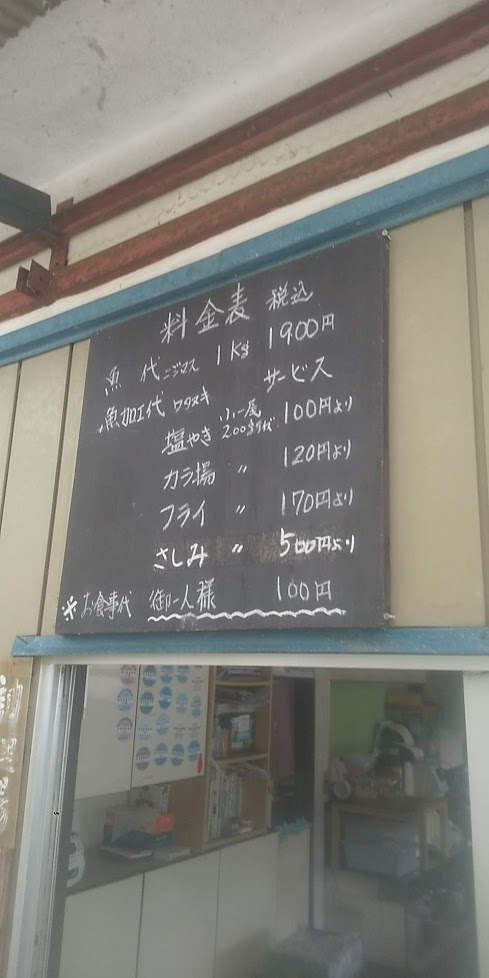 料金表 税込
魚 代 ニジマス 1Kg 1900円
魚加工代 ワタヌキ サービス
塩やき 小一尾 200gまで 100円より
カラ揚 〃 120円より
フライ 〃 170円より
さしみ 〃 500円より
※お食事代 御一人様 100円